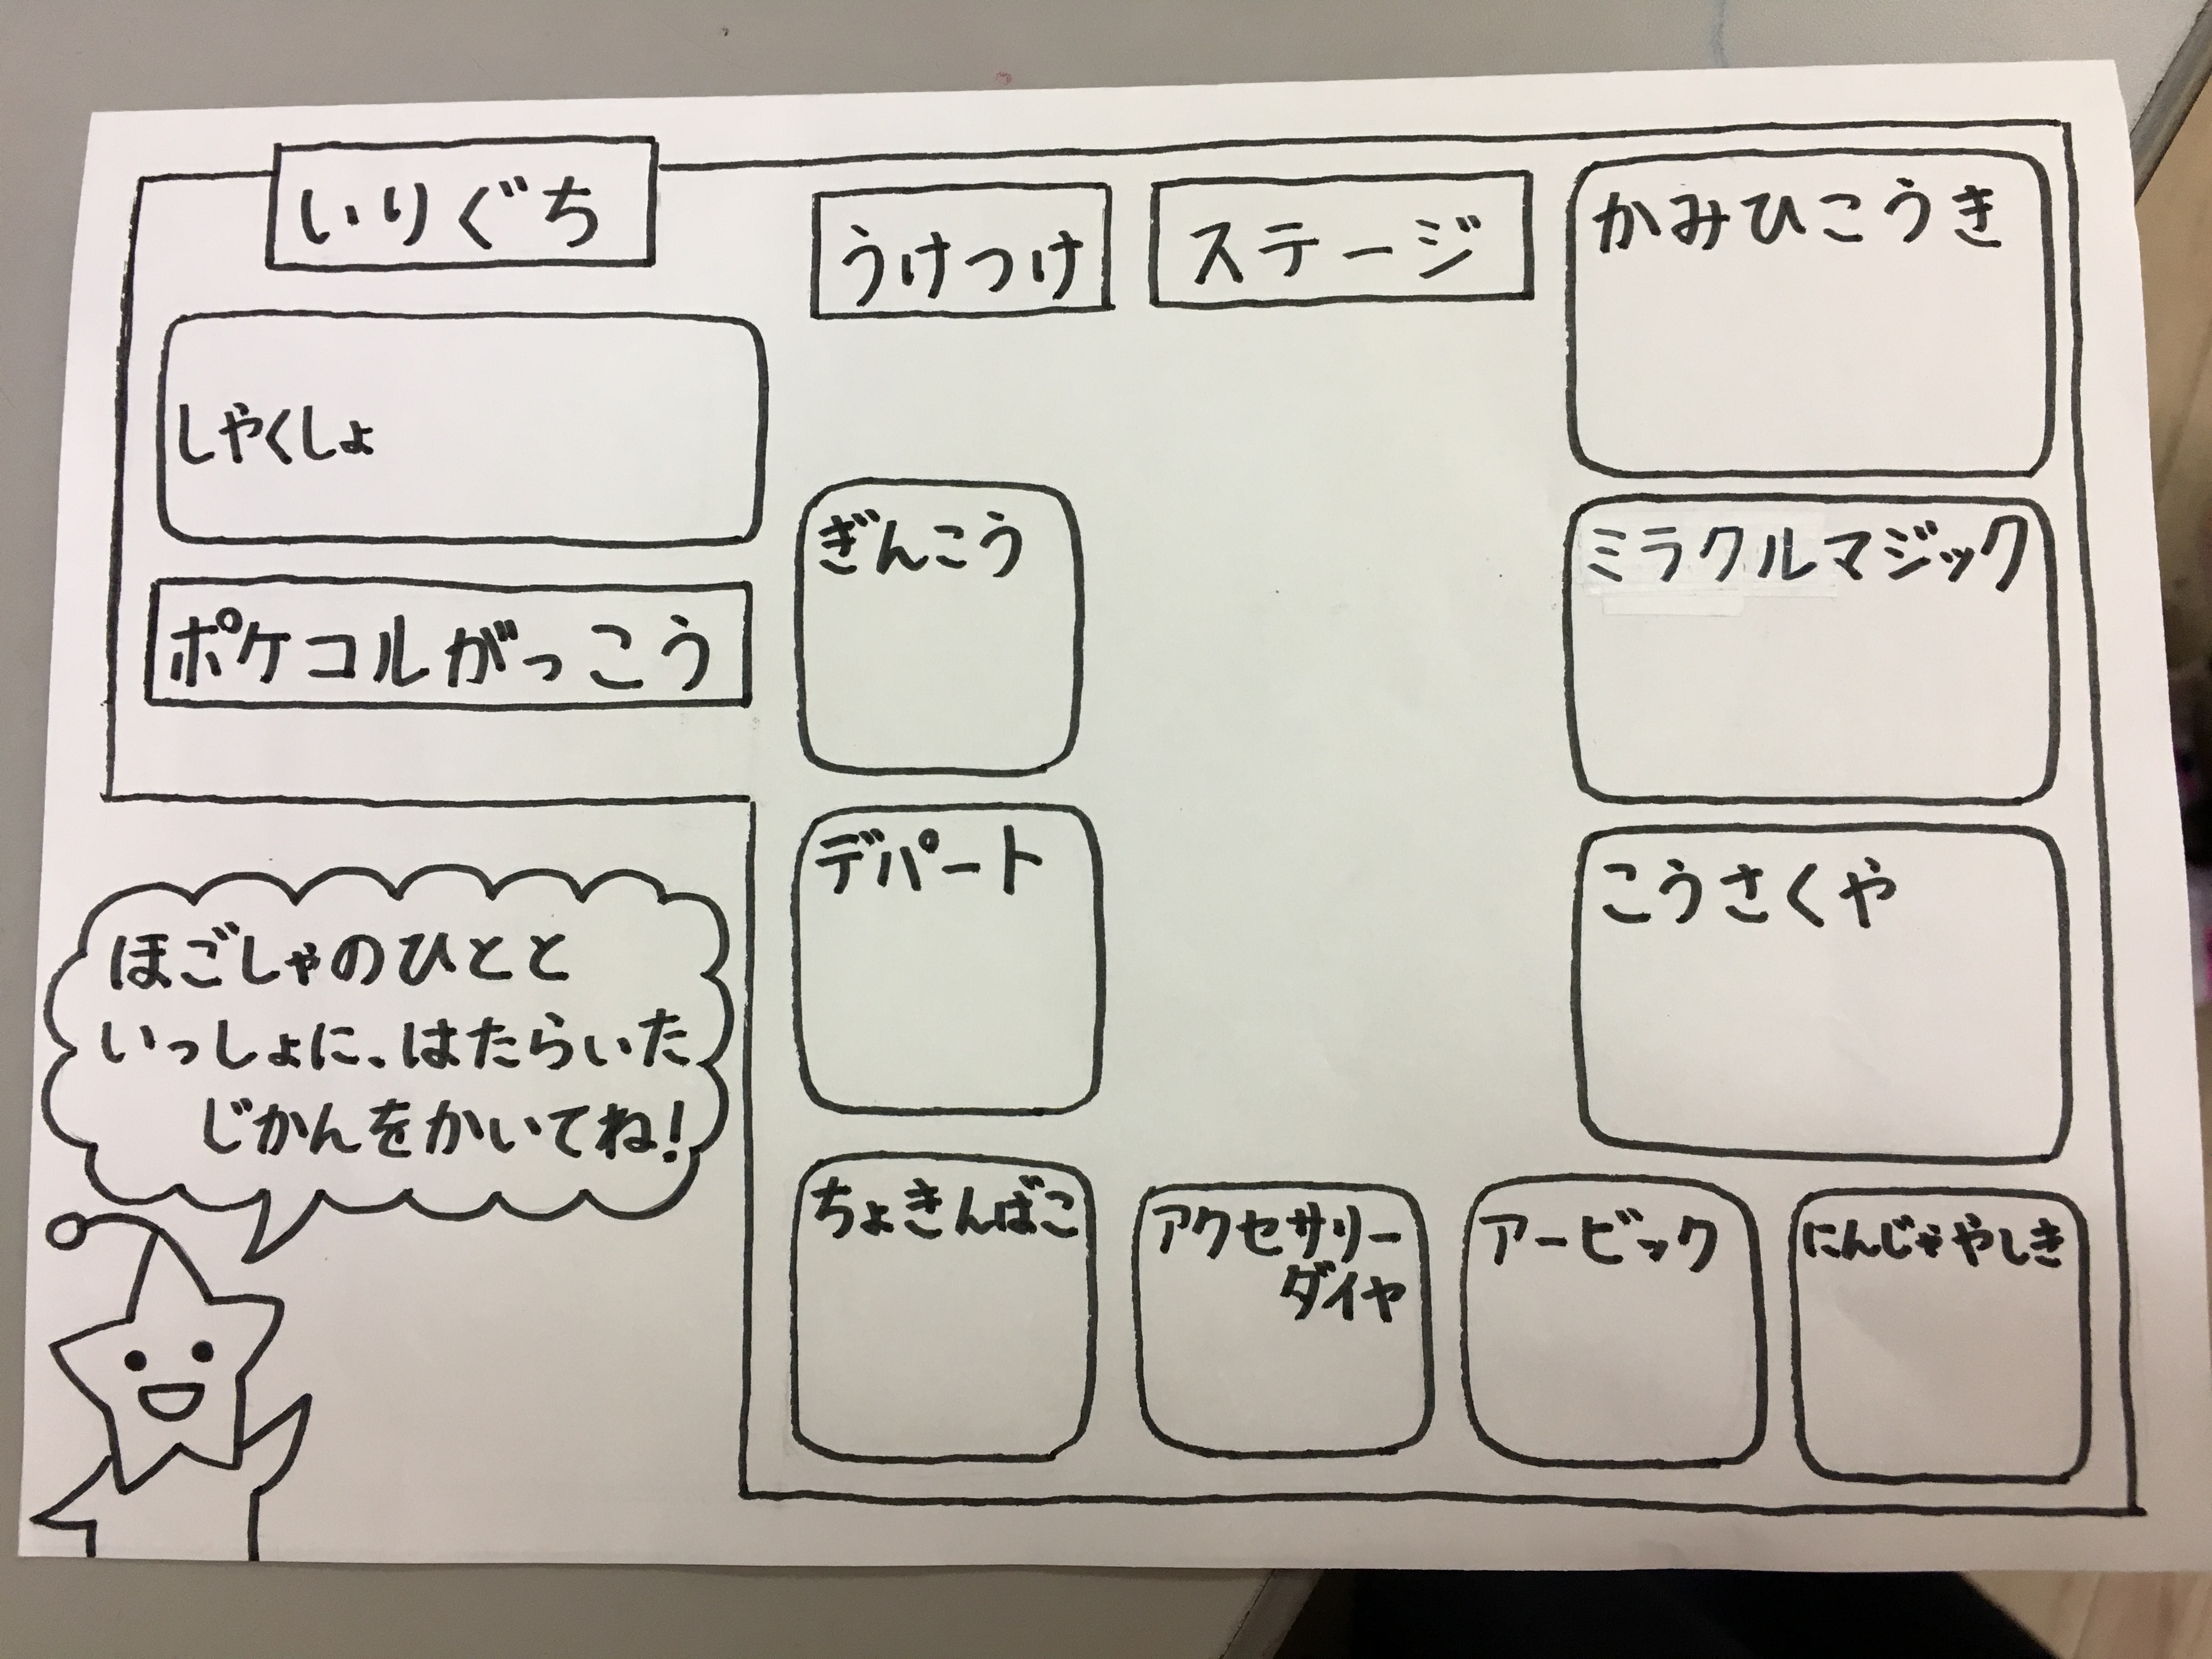 いりぐち
うけつけ
ステージ
かみひこうき
しやくしょ
ぎんこう
ミラクルマジック
ポケコルがっこう
デパート
こうさくや
ほごしゃのひとと
いっしょに、はたらいた
じかんをかいてね!
ちょきんばこ
アクセサリー
ダイヤ
アービック
にんじゃやしき